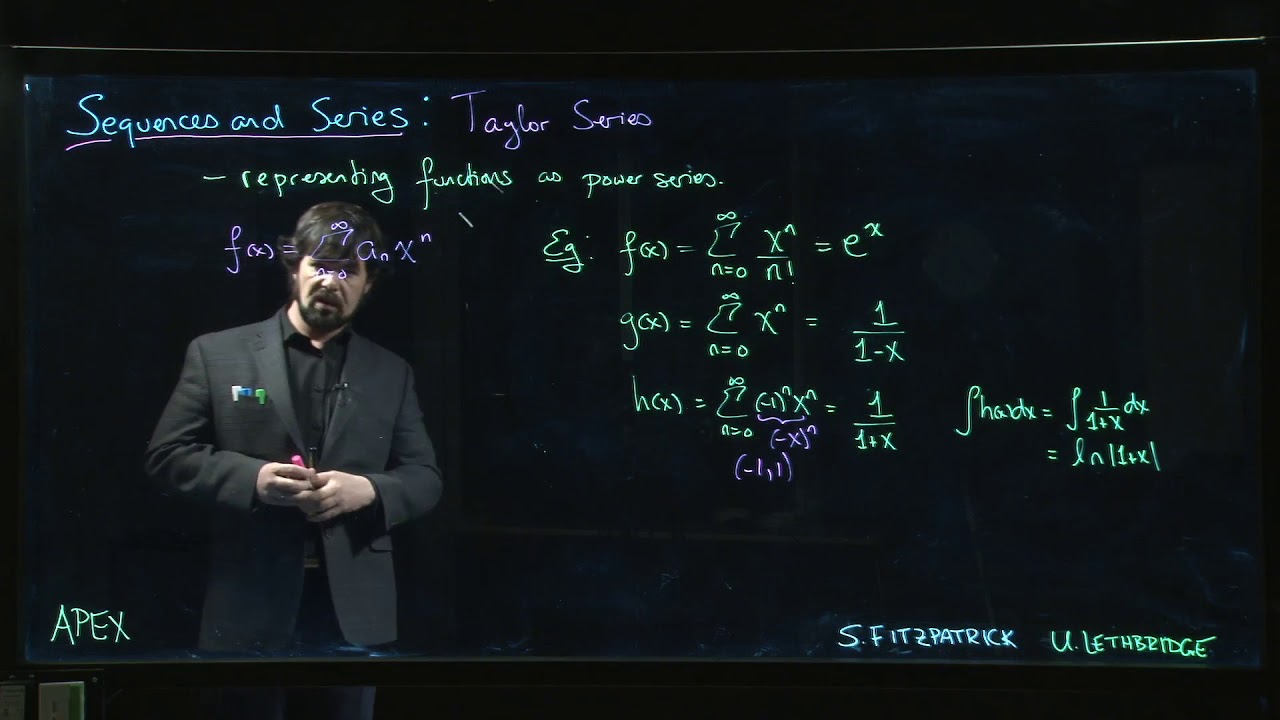 Sequences and Series: Taylor Series
– representing functions as power series.
f(x) = ∑_{n=0}^{∞} aₙ xⁿ
Eg: f(x) = ∑_{n=0}^{∞} xⁿ/n! = eˣ
g(x) = ∑_{n=0}^{∞} xⁿ = 1/(1-x)
h(x) = ∑_{n=0}^{∞} (-1)ⁿxⁿ = 1/(1+x)
(-x)ⁿ
(-1,1)
∫h(x)dx = ∫ 1/(1+x) dx
= ln|1+x|
APEX
S. FITZPATRICK U. LETHBRIDGE